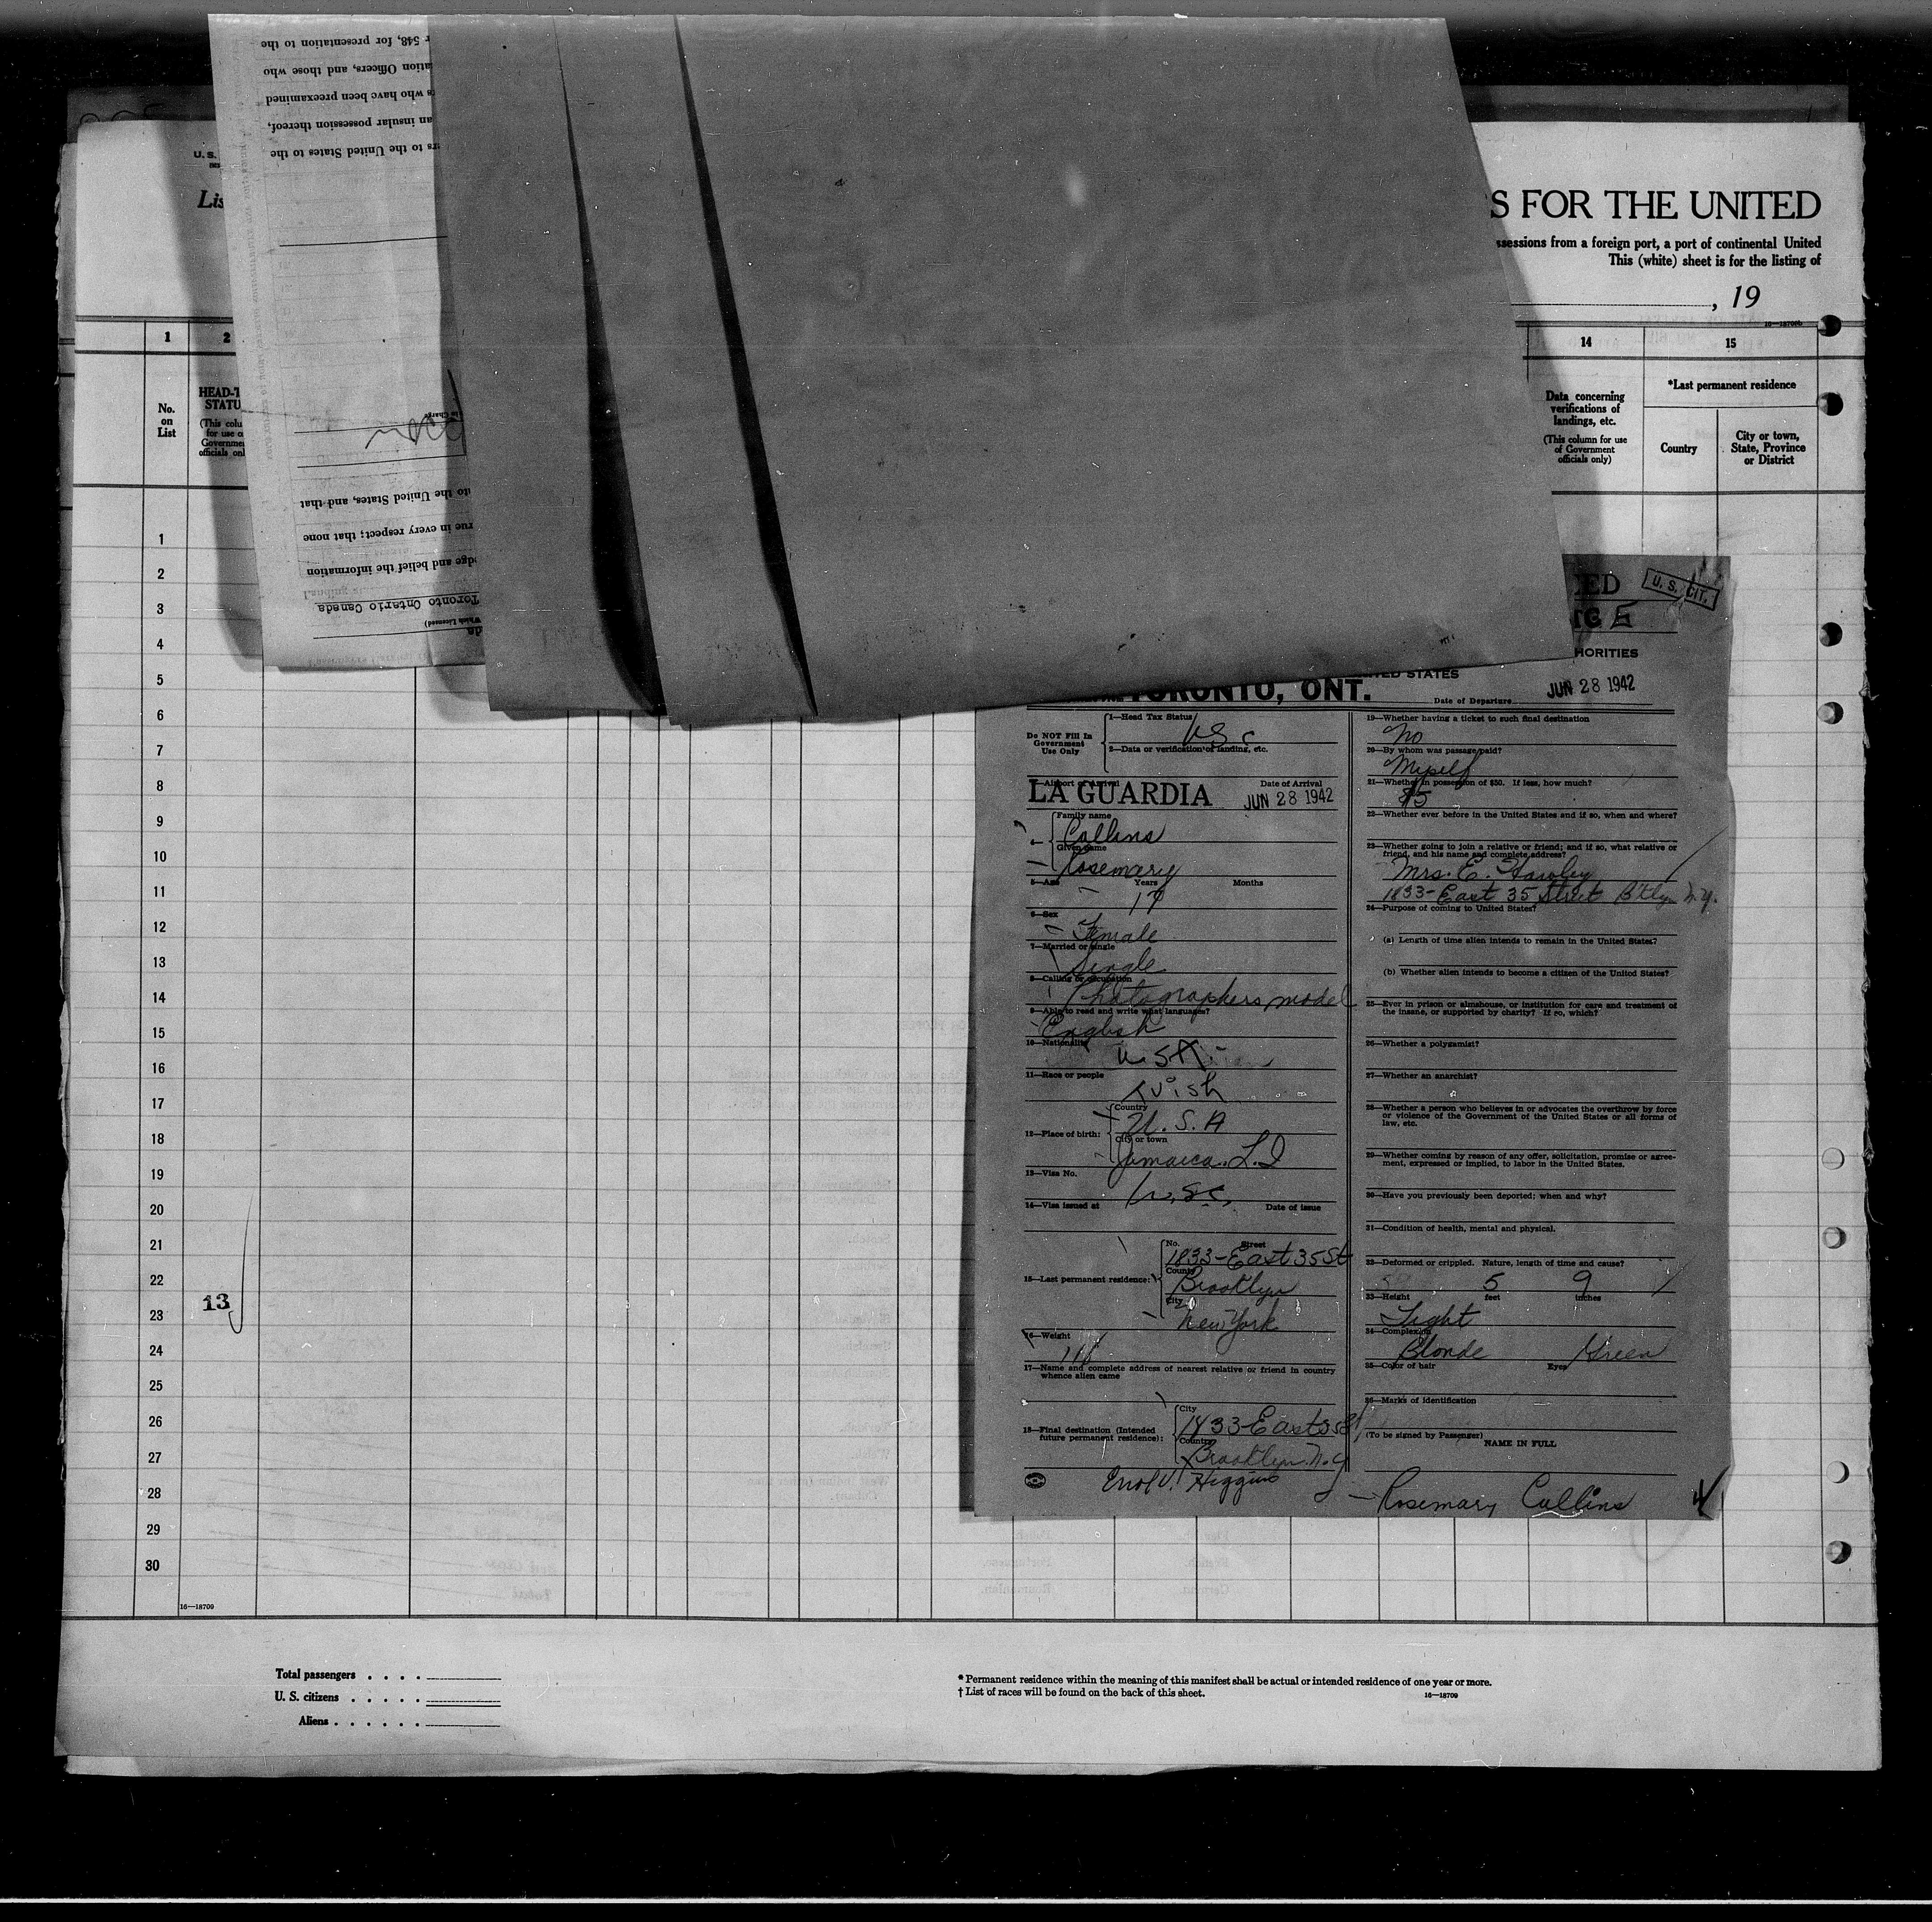 r 548, for presentation to the
ation Officers, and those who
s who have been preexamined
an insular possession thereof,
rs to the United States to the
in Charge
to the United States, and that
rue in every respect; that none
dge and belief the information
Toronto Ontario Canada
which Licensed)
U. S.
Lis
S FOR THE UNITED
ssessions from a foreign port, a port of continental United
This (white) sheet is for the listing of
, 19
1 2 14 15
No. on List
HEAD-T
STATU
(This colu
for use o
Governme
officials onl
Data concerning verifications of landings, etc.
(This column for use of Government officials only)
*Last permanent residence
Country
City or town, State, Province or District
1
2
3
4
5
6
7
8
9
10
11
12
13
14
15
16
17
18
19
20
21
22
13
23
24
25
26
27
28
29
30
16—18709
U. S. CIT.
HORITIES
TED STATES
TORONTO, ONT.
Date of Departure
JUN 28 1942
Do NOT Fill In Government Use Only
1—Head Tax Status
USC
2—Data or verification of landing, etc.
3—Airport of Arrival
Date of Arrival
LA GUARDIA JUN 28 1942
Family name
Collins
Given name
Rosemary
5—Age Years Months
17
6—Sex
Female
7—Married or single
Single
8—Calling or occupation
Photographers model
9—Able to read and write what languages?
English
10—Nationality
U.S.A.
11—Race or people
Irish
12—Place of birth:
Country
U. S. A
City or town
Jamaica. L. I
13—Visa No.
U.S.C.
14—Visa issued at Date of issue
15—Last permanent residence:
No. Street
1833-East 35 St
County
Brooklyn
City
New York
16—Weight
116
17—Name and complete address of nearest relative or friend in country whence alien came
18—Final destination (Intended future permanent residence):
City
1833-East 35 St
Country
Brooklyn N.Y
Higgins
19—Whether having a ticket to such final destination
No
20—By whom was passage paid?
Myself
21—Whether in possession of $50. If less, how much?
22—Whether ever before in the United States and if so, when and where?
23—Whether going to join a relative or friend; and if so, what relative or friend, and his name and complete address?
Mrs. E. Hawley
1833-East 35 Street B'klyn N.Y.
24—Purpose of coming to United States?
(a) Length of time alien intends to remain in the United States?
(b) Whether alien intends to become a citizen of the United States?
25—Ever in prison or almshouse, or institution for care and treatment of the insane, or supported by charity? If so, which?
26—Whether a polygamist?
27—Whether an anarchist?
28—Whether a person who believes in or advocates the overthrow by force or violence of the Government of the United States or all forms of law, etc.
29—Whether coming by reason of any offer, solicitation, promise or agreement, expressed or implied, to labor in the United States.
30—Have you previously been deported; when and why?
31—Condition of health, mental and physical.
32—Deformed or crippled. Nature, length of time and cause?
5 9
33—Height feet inches
Light
34—Complexion
Blonde Green
35—Color of hair Eyes
36—Marks of identification
(To be signed by Passenger)
NAME IN FULL
Rosemary Collins
Total passengers . . . .
U. S. citizens . . . . .
Aliens . . . . . .
* Permanent residence within the meaning of this manifest shall be actual or intended residence of one year or more.
† List of races will be found on the back of this sheet.
16—18709